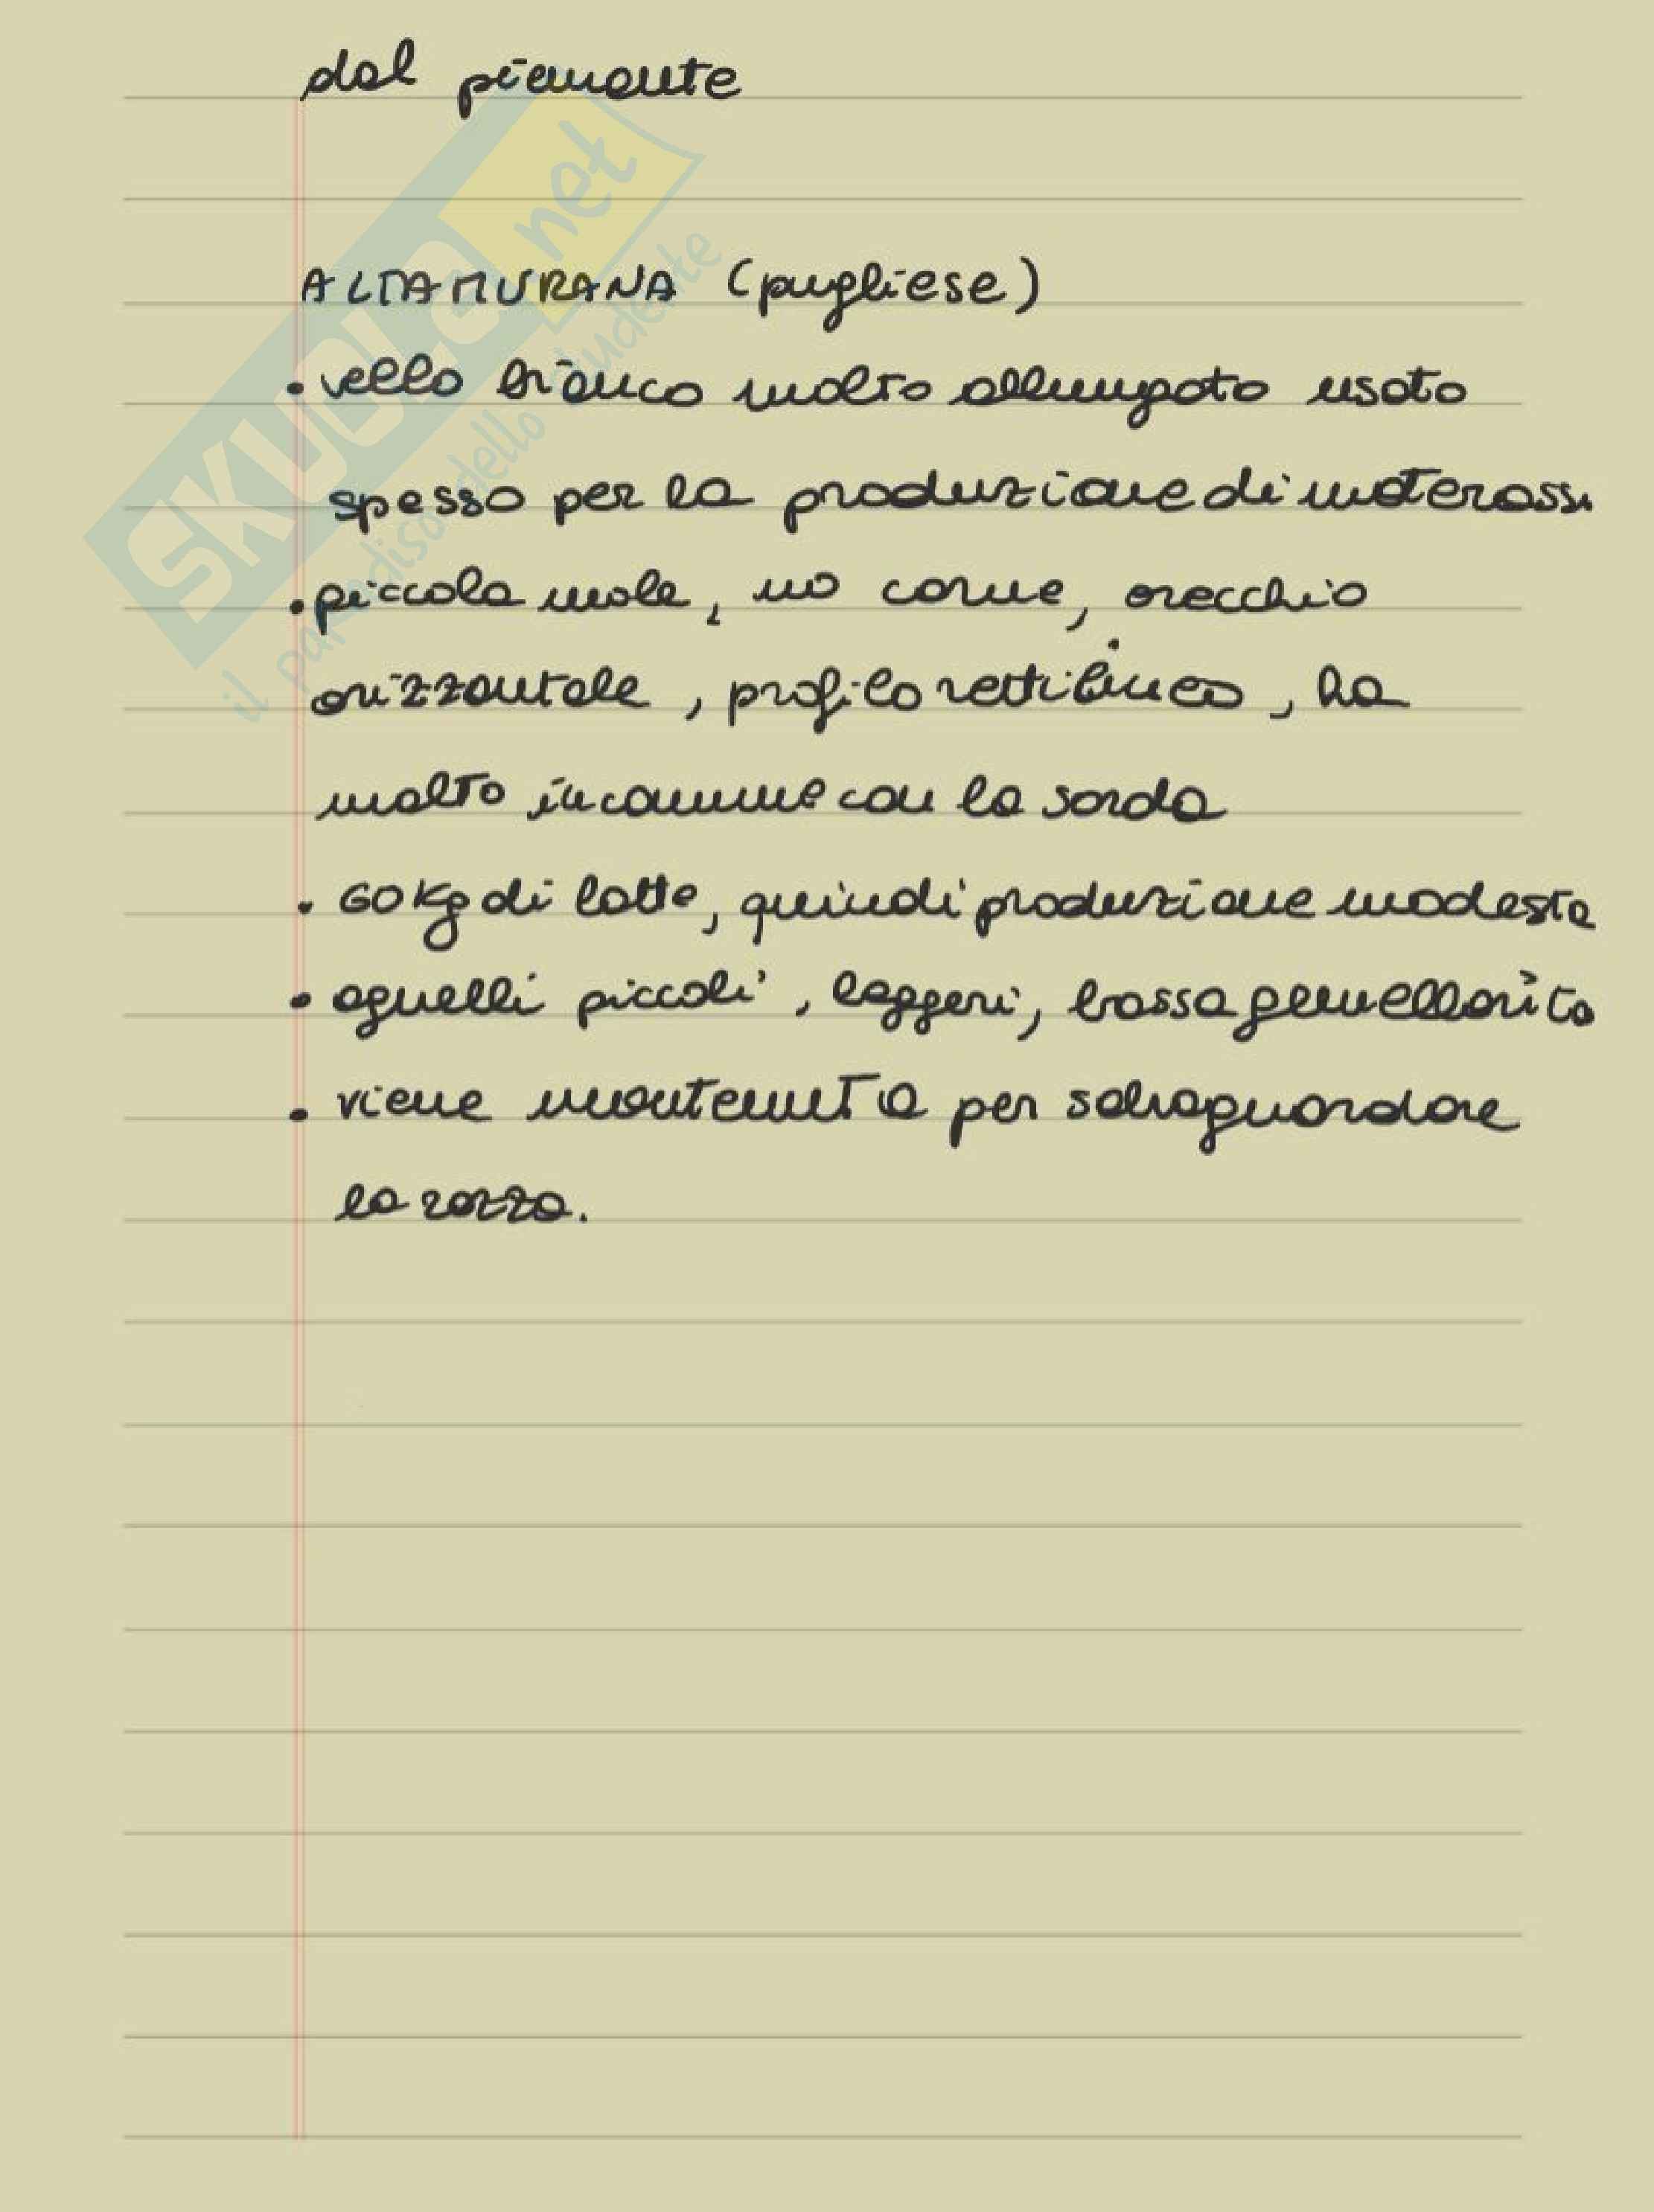 dal piemonte
ALTAMURANA (pugliese)
• vello bianco molto allungato usato
spesso per la produzione di materassi
• piccola mole, no corne, orecchio
orizzontale, profilo rettilineo, ha
molto in comune con la sarda
• 60 kg di latte, quindi produzione modesta
• agnelli piccoli, leggeri, bassa gemellarità
• viene mantenuta per salvaguardare
la razza.
SKUOLA.net
il paradiso dello studente